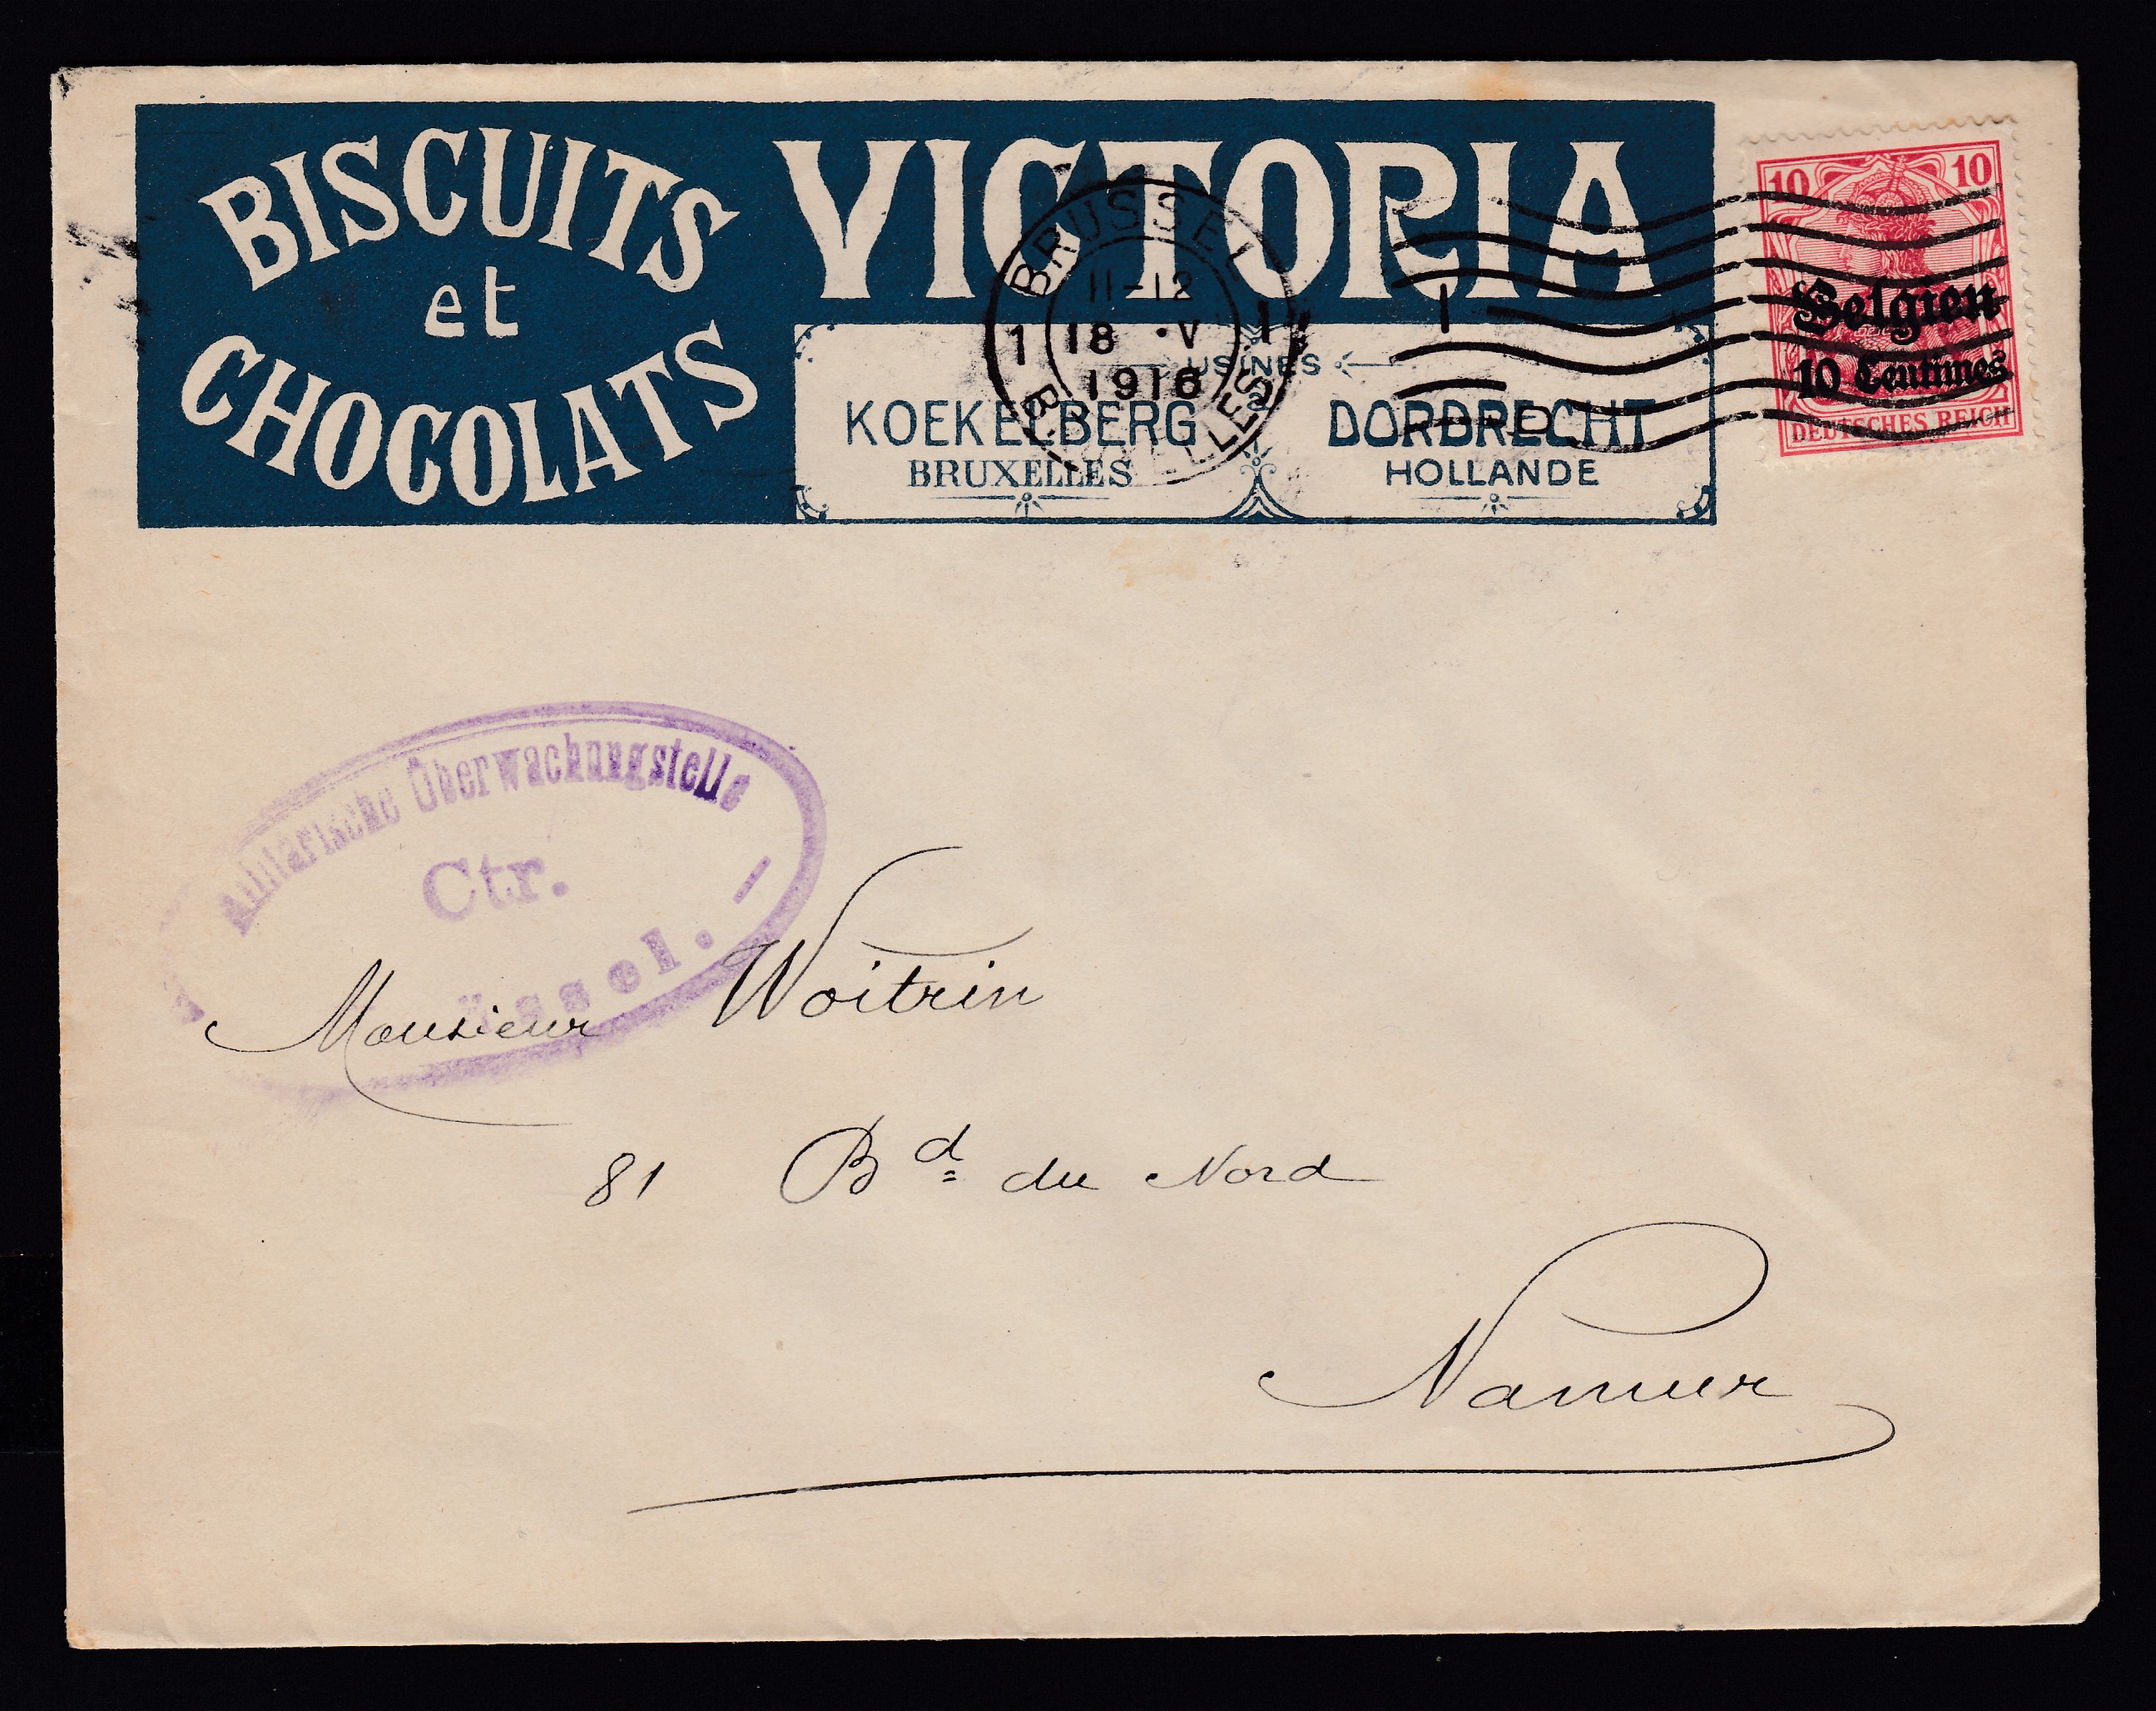 BISCUITS
et
CHOCOLATS
VICTORIA
USINES
KOEKELBERG
BRUXELLES
DORDRECHT
HOLLANDE
BRUSSEL
11-12
1 18 ·V 1
1916
BRUXELLES
10 10
Belgien
10 Centimes
DEUTSCHES REICH
Militärische Überwachungstelle
Ctr.
Monsieur Woitrin
81 Bd du Nord
Namur